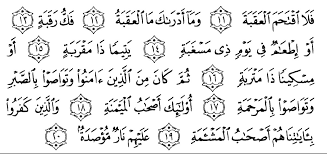 فَلَا ٱقْتَحَمَ ٱلْعَقَبَةَ ۝١١ وَمَآ أَدْرَىٰكَ مَا ٱلْعَقَبَةُ ۝١٢ فَكُّ رَقَبَةٍ ۝١٣ أَوْ
إِطْعَٰمٌ فِى يَوْمٍ ذِى مَسْغَبَةٍ ۝١٤ يَتِيمًا ذَا مَقْرَبَةٍ ۝١٥ أَوْ
مِسْكِينًا ذَا مَتْرَبَةٍ ۝١٦ ثُمَّ كَانَ مِنَ ٱلَّذِينَ ءَامَنُوا۟ وَتَوَاصَوْا۟ بِٱلصَّبْرِ
وَتَوَاصَوْا۟ بِٱلْمَرْحَمَةِ ۝١٧ أُو۟لَٰٓئِكَ أَصْحَٰبُ ٱلْمَيْمَنَةِ ۝١٨ وَٱلَّذِينَ كَفَرُوا۟
بِـَٔايَٰتِنَا هُمْ أَصْحَٰبُ ٱلْمَشْـَٔمَةِ ۝١٩ عَلَيْهِمْ نَارٌ مُّؤْصَدَةٌۢ ۝٢٠